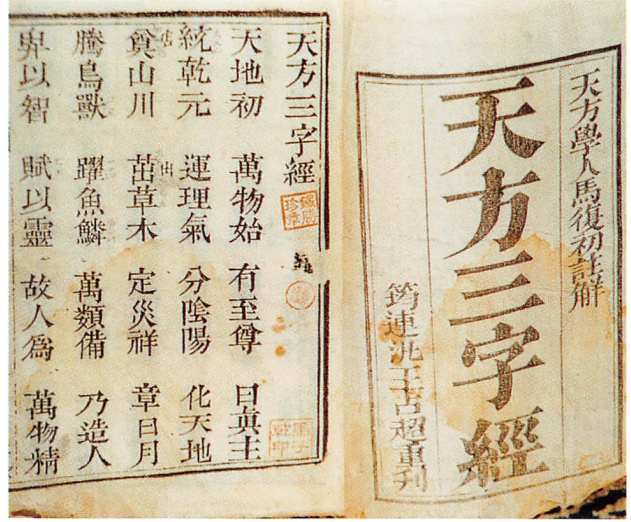 天方學人馬復初註解
天方三字經
筠連王古超重刊
天方三字經
天地初 萬物始 有至尊 曰眞主
統乾元 運理氣 分陰陽 化天地
奠山川 茁草木 定災祥 章日月
騰鳥獸 躍魚鱗 萬類備 乃造人
畀以智 賦以靈 故人爲 萬物精